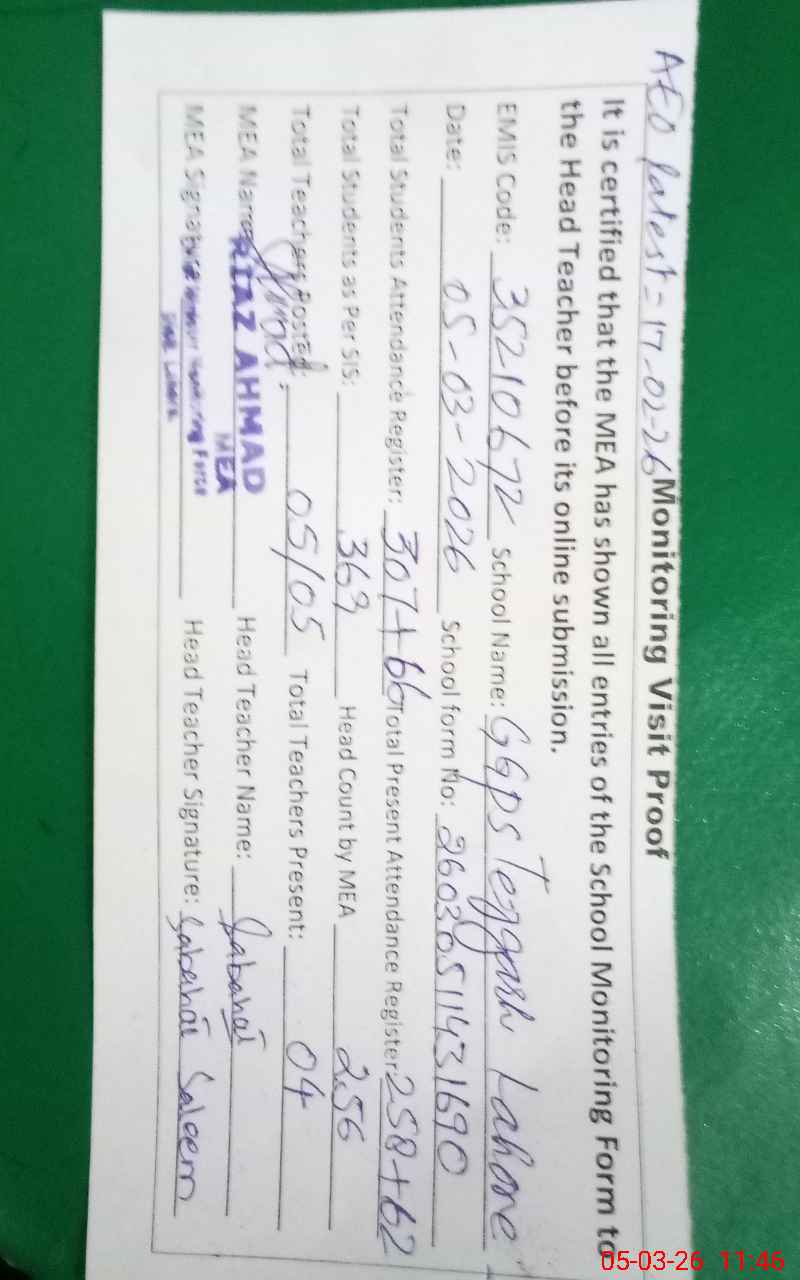 AEO latest = 17-02-26
Monitoring Visit Proof
It is certified that the MEA has shown all entries of the School Monitoring Form to
the Head Teacher before its online submission.
EMIS Code: 35210672 School Name: GGPS Teggarh Lahore
Date: 05-03-2026 School form No: 2603051143 1690
Total Students Attendance Register: 307+66 Total Present Attendance Register: 258+62
Total Students as Per SIS: 369 Head Count by MEA 256
Total Teachers Posted: 05/05 Total Teachers Present: 04
MEA Name RIAZ AHMAD Head Teacher Name: Sabahat
MEA
MEA Signature Head Teacher Signature: Sabahat Saleem
Monitoring Force
Lahore
05-03-26 11:46